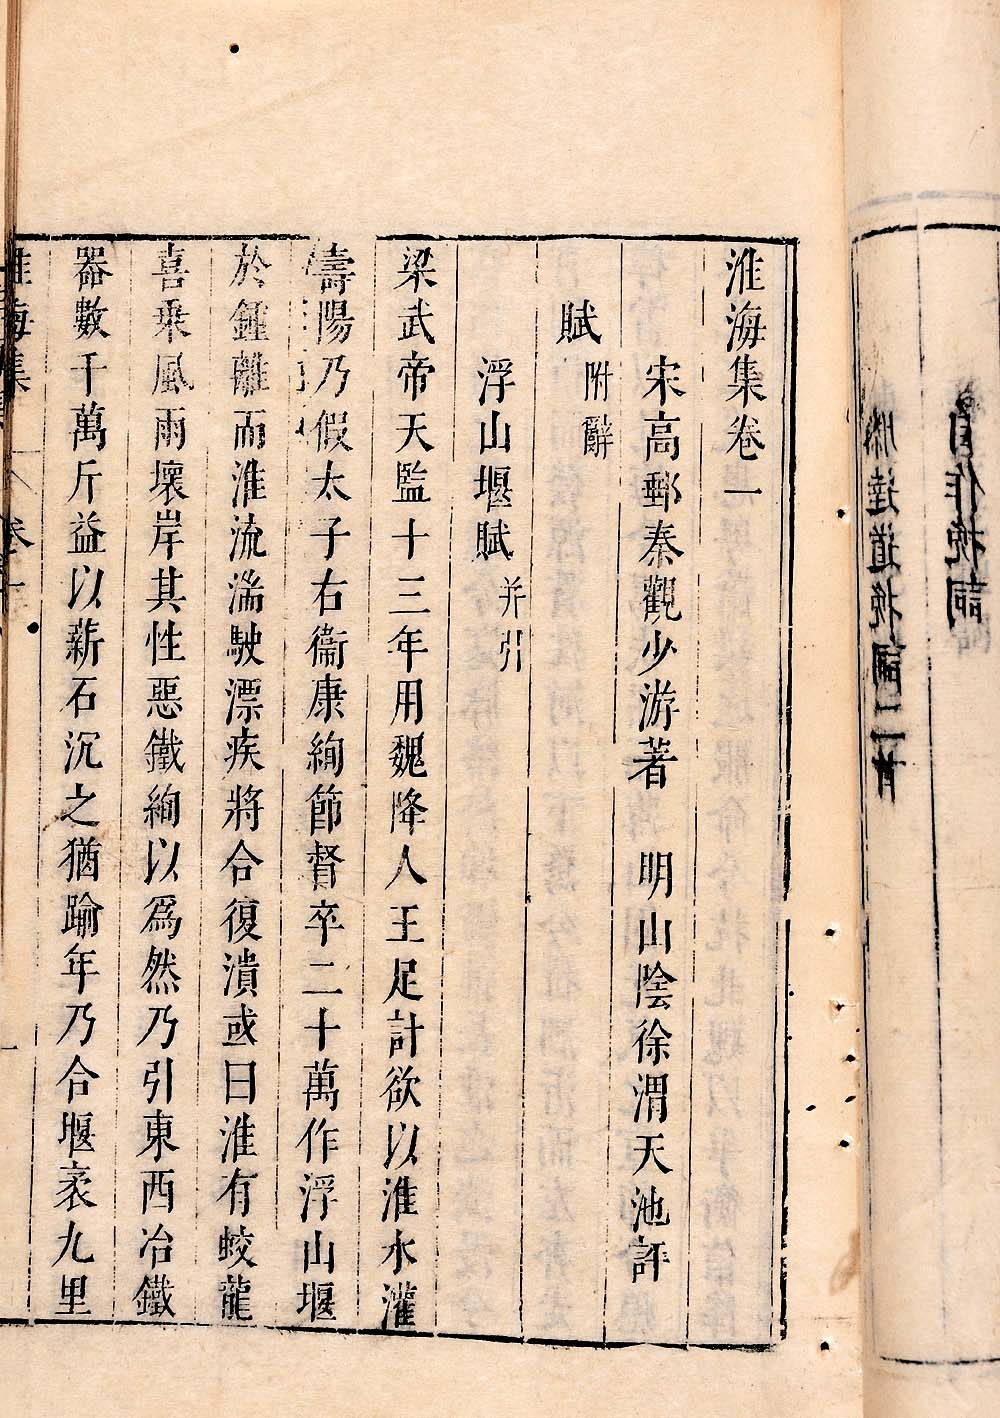 淮海集卷一
宋高郵秦觀少游著 明山陰徐渭天池評
賦附辭
浮山堰賦并引
梁武帝天監十三年用魏降人王足計欲以淮水灌
壽陽乃假太子右衞康絢節督卒二十萬作浮山堰
於鍾離而淮流湍駛漂疾將合復潰或曰淮有蛟龍
喜乗風雨壞岸其性惡鐵絢以爲然乃引東西冶鐵
器數千萬斤益以薪石沉之猶踰年乃合堰袤九里
淮海集 卷一 一